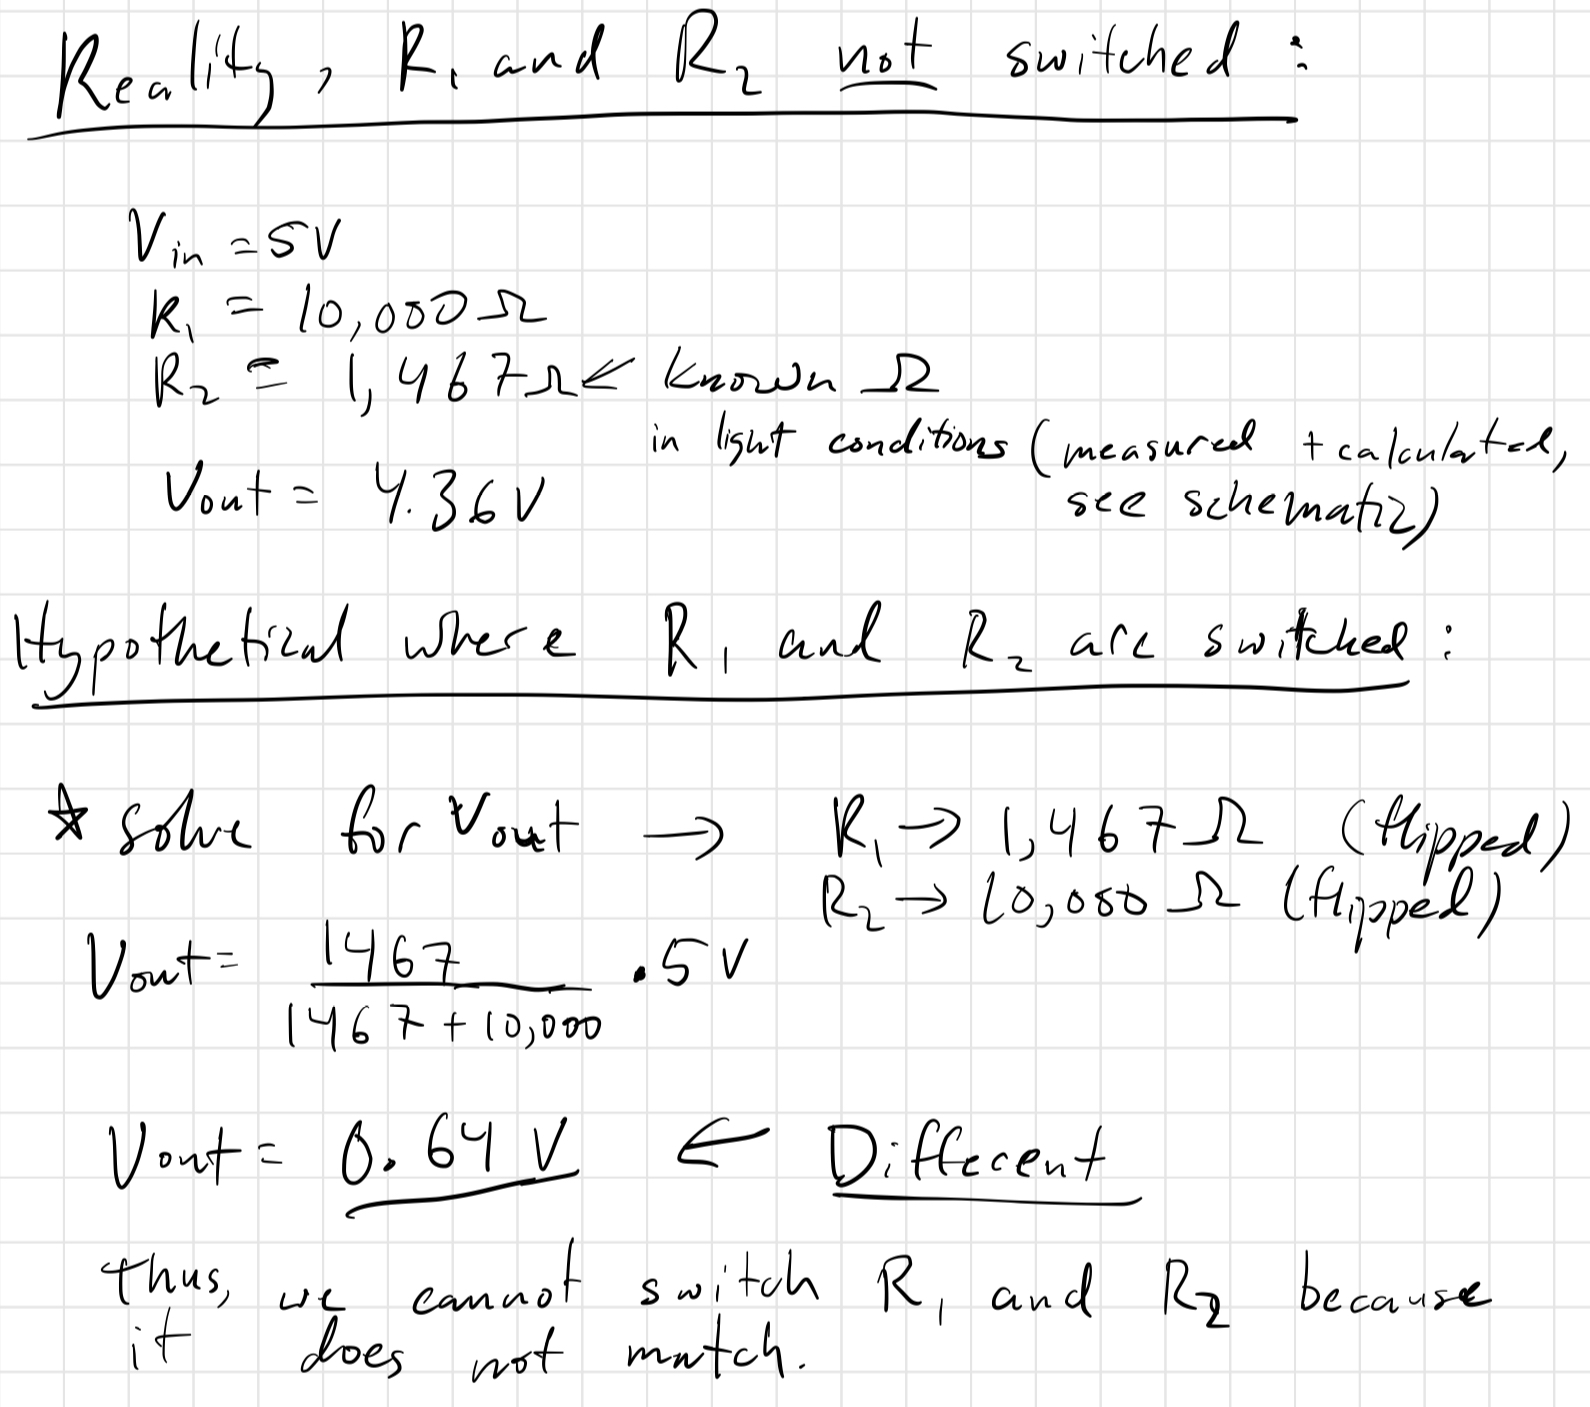 Reality, R₁ and R₂ not switched:
Vin = 5V
R₁ = 10,000 Ω
R₂ = 1,467 Ω ← known Ω
in light conditions (measured + calculated,
see schematic)
Vout = 4.36V
Hypothetical where R₁ and R₂ are switched:
☆ solve for Vout → R₁ → 1,467 Ω (flipped)
R₂ → 10,000 Ω (flipped)
Vout = 1467 / 1467 + 10,000 · 5V
Vout = 0.64 V ← Different
thus, we cannot switch R₁ and R₂ because
it does not match.